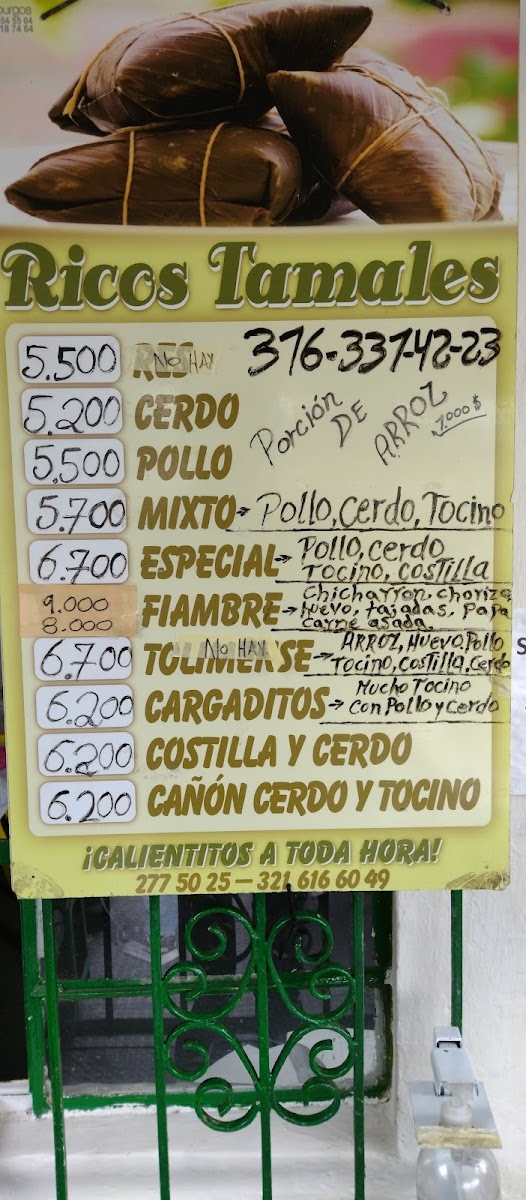 54 55 04
18 74 64
Ricos Tamales
376-337-42-23
5.500 RES No HAY
5.200 CERDO
5.500 POLLO
Porción DE ARROZ
1.000 $
5.700 MIXTO → Pollo, Cerdo, Tocino
6.700 ESPECIAL → Pollo, Cerdo
Tocino, Costilla
9.000
8.000
FIAMBRE → Chicharron, Chorizo
Huevo, tajadas, Papa
Carne asada.
6.700 TOLIMENSE No HAY → ARROZ, Huevo, Pollo
Tocino, Costilla, Cerdo
6.200 CARGADITOS → Mucho Tocino
Con Pollo y Cerdo
6.200 COSTILLA Y CERDO
6.200 CAÑÓN CERDO Y TOCINO
¡CALIENTITOS A TODA HORA!
277 50 25 — 321 616 60 49